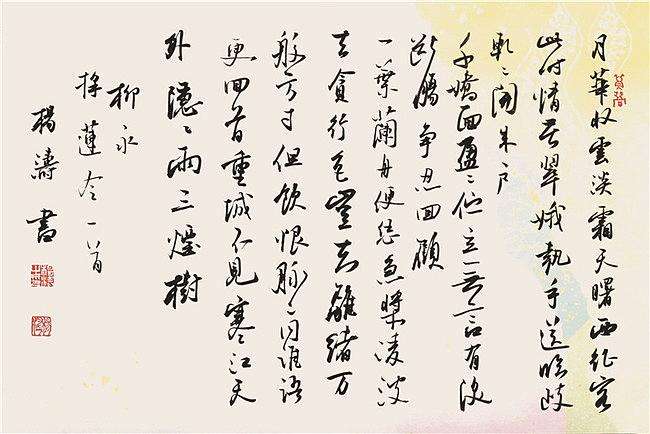 月華收雲淡霜天曙西征客
此时情苦翠娥執手送臨歧
軋々開朱戶
千嬌面盈々佇立無言有淚
断腸争忍回顧
一葉蘭舟便恁急槳凌波
去貪行色豈知離緒万
般方寸但飲恨脉々同誰語
更回首重城不見寒江天
外隱々兩三煙樹
柳永
採蓮令一首
楊濤書